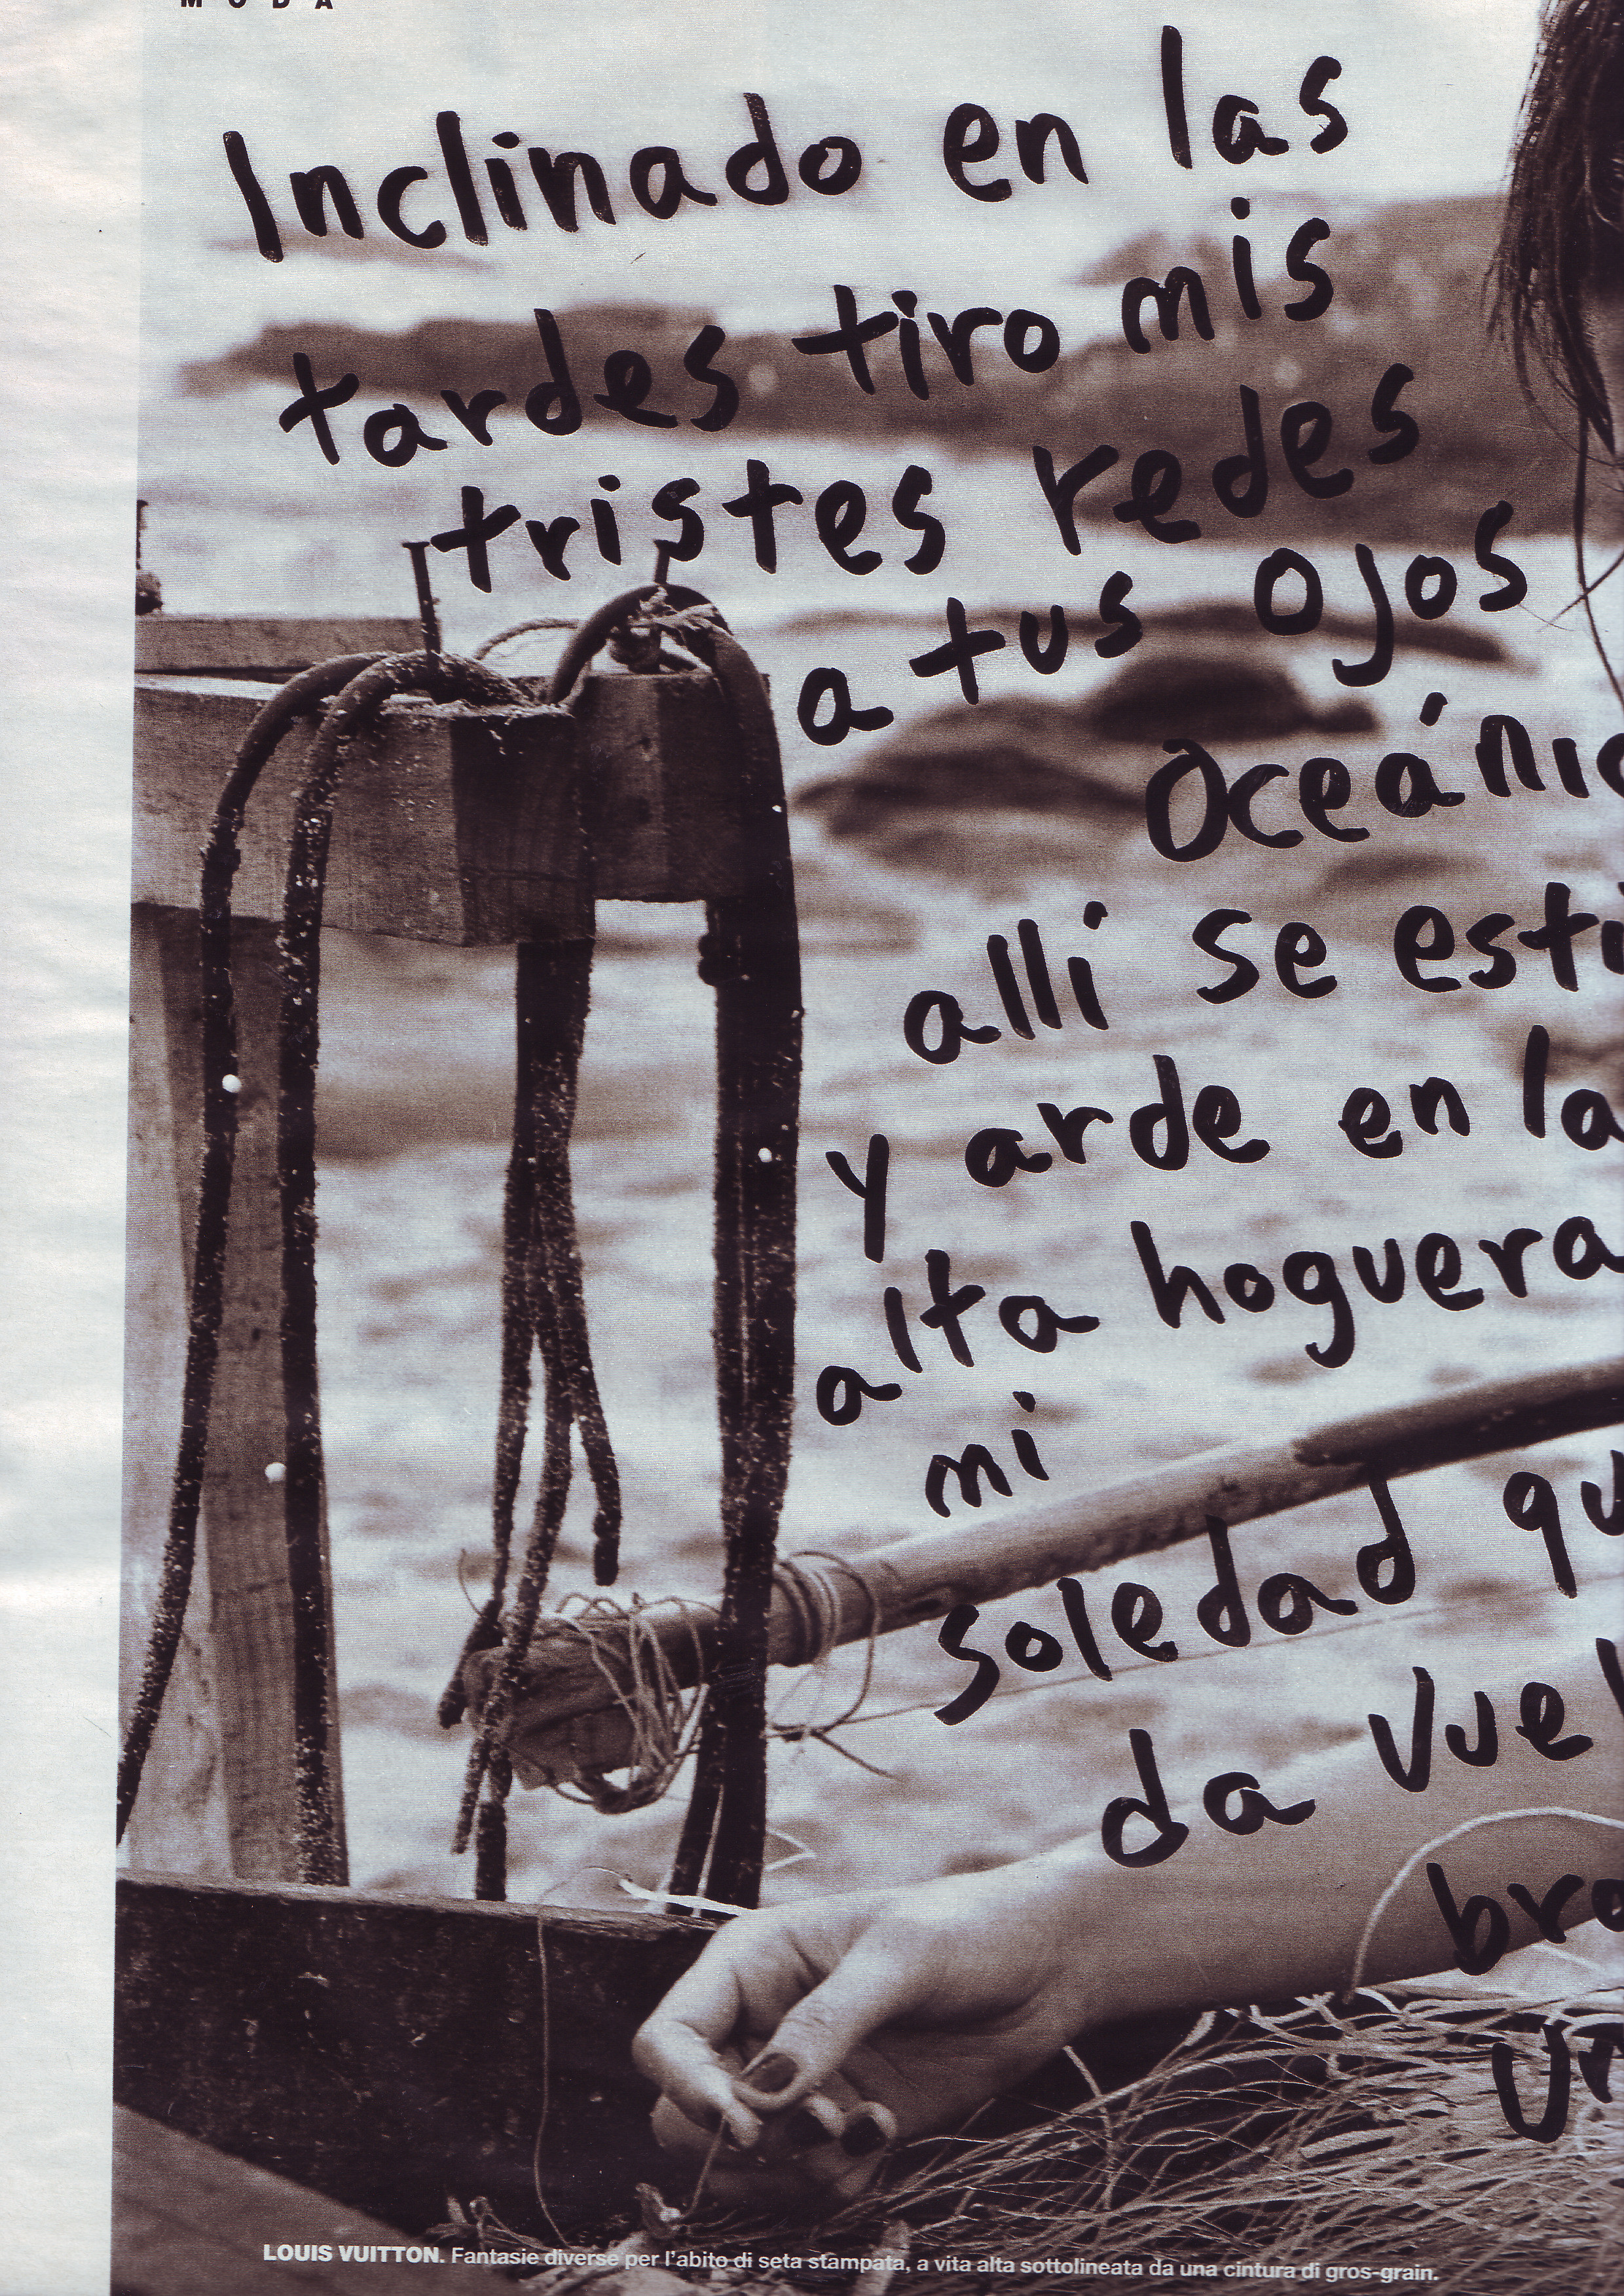 MODA
Inclinado en las
tardes tiro mis
tristes redes
a tus ojos
oceánic
alli se esti
y arde en la
alta hoguera
mi
soledad qu
da vuel
bra
un
LOUIS VUITTON. Fantasie diverse per l'abito di seta stampata, a vita alta sottolineata da una cintura di gros-grain.